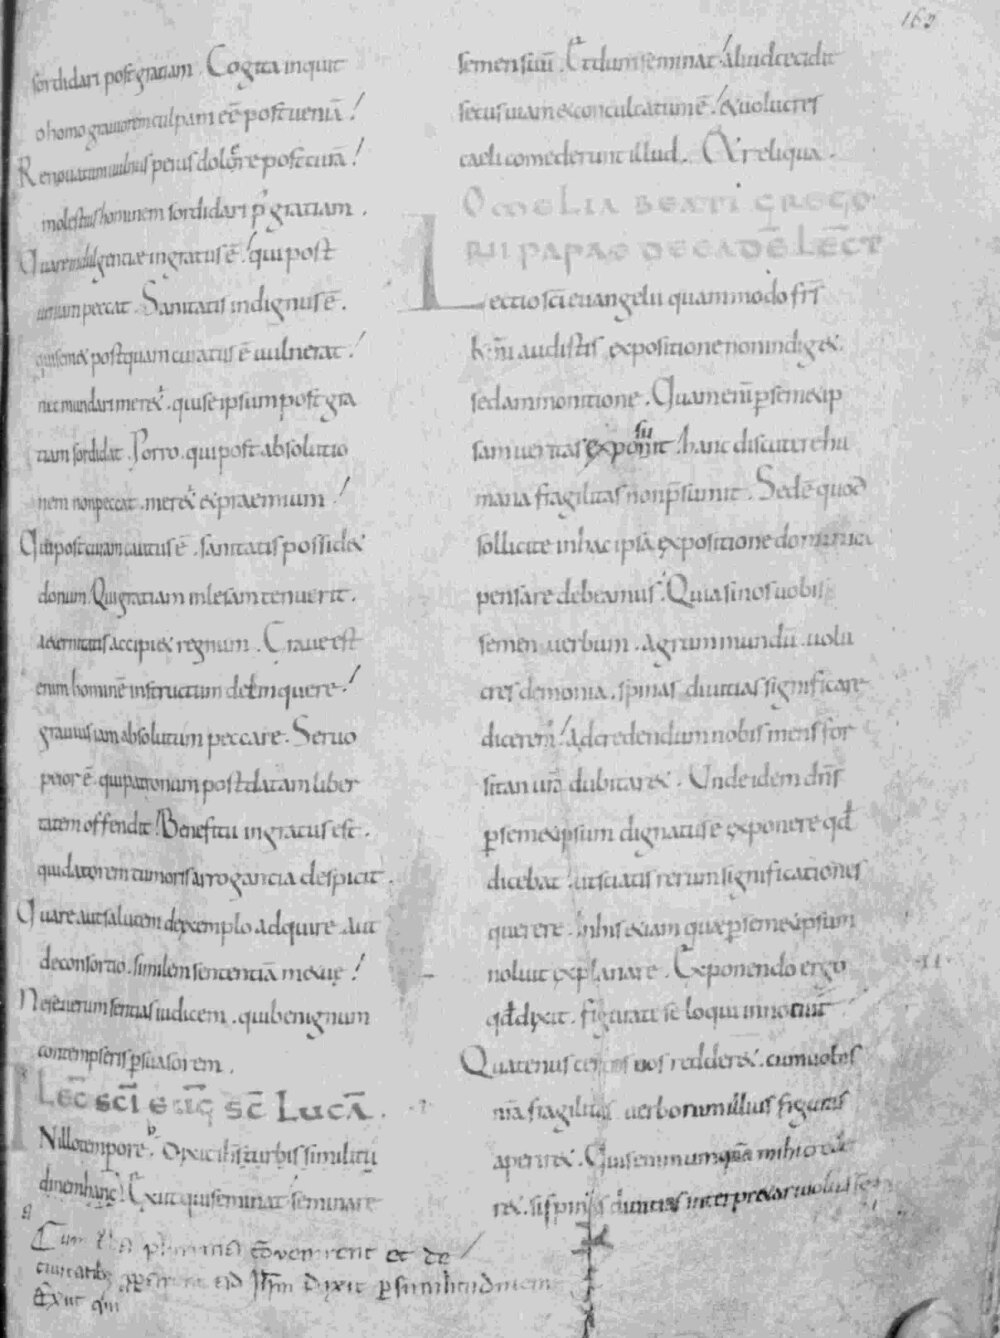 162
sordidari post gratiam. Cogita inquit
o homo grauiorem culpam eē post ueniā!
Renouatum uulnus peius dolore post curā!
molestius hominem sordidari p' gratiam.
Quare indulgentiae ingratus ē! qui post
ueniam peccat. Sanitatis indignus ē.
qui semet postquam curatus ē uulnerat!
nec mundari meret'. qui se ipsum post gra
tiam sordidat. Porro. qui post absolutio
nem non peccat. meret' et praemium!
Qui post curam cautus ē. sanitatis possidet
donum. Qui gratiam inlesam tenuerit.
aeternitatis accipiet regnum. Graue est
enim hominē instructum delinquere!
grauius iam absolutum peccare. Seruo
peior ē. qui patronum post datam liber
tatem offendit! Beneficii ingratus est.
qui datorem tumoris arrogancia despicit.
Quare aut salutem de exemplo adquire. aut
de consortio. similem sententiā metue!
Ne seuerum sentias iudicem. quī benignum
contempseris p̄suasorem.
Lec̄ sc̄i euḡ sc̄ Lucā.
IN illo tempore. Dixit ihs turbis similitu
dinem hanc! Exiit qui seminat seminare
Cum plurima c̄ōuenirent et de
ciuitatib; pperarent ad Ih̄m dixit p similitudinem
Exiit qui
semen suū. Et dum seminat! aliud cecidit
secus uiam et conculcatum ē! et uolucres
caeli comederunt illud. Et reliqua.
OMELIA BEATI GREGO
RII PAPAE DE EADĒ LEC̄T
Lectio sc̄i euangelii quam modo fr̄s
k̄mi audistis expositione non indiget.
sed ammonitione. Quam enī p semetip
sam ueritas exposuit. hanc discutere hu
mana fragilitas non p̄sumit. Sed ē quod
sollicite in hac ipsa expositione dominica
pensare debeamus. Quia si nos uobis
semen uerbum. agrum mundū. uolu
cres demonia. spinas diuitias significare
dicerem! Ad credendum nobis mens for
sitan ur̄a dubitaret. Unde idem dn̄s
p semetipsum dignatus e exponere qd̄
dicebat. ut sciatis rerum significationes
querere. in his etiam quae p semetipsum
noluit explanare. Exponendo ergo
qd̄ dixit. figurate se loqui innotuit
Quatenus certos uos redderet. cum uobis
nr̄a fragilitas uerborum illius figuras
aperiret. Quis enim umquā mihi crede
ret. si spinas diuitias interpretari uoluissem